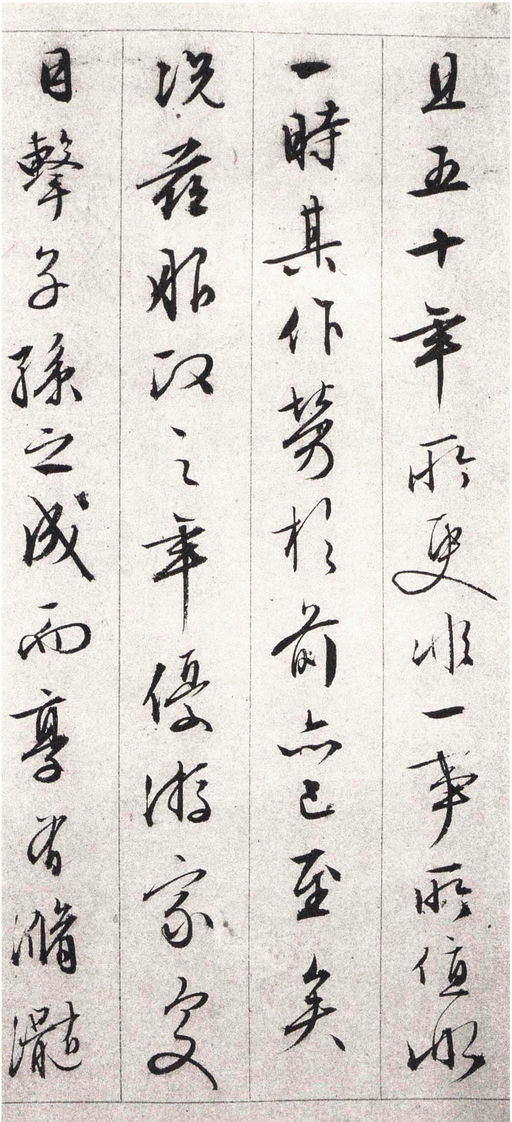 且五十年所更非一事所值非
一時其作勞於前亦已至矣
况茲服政之年優游家食
目擊子孫之成而享有滫瀡